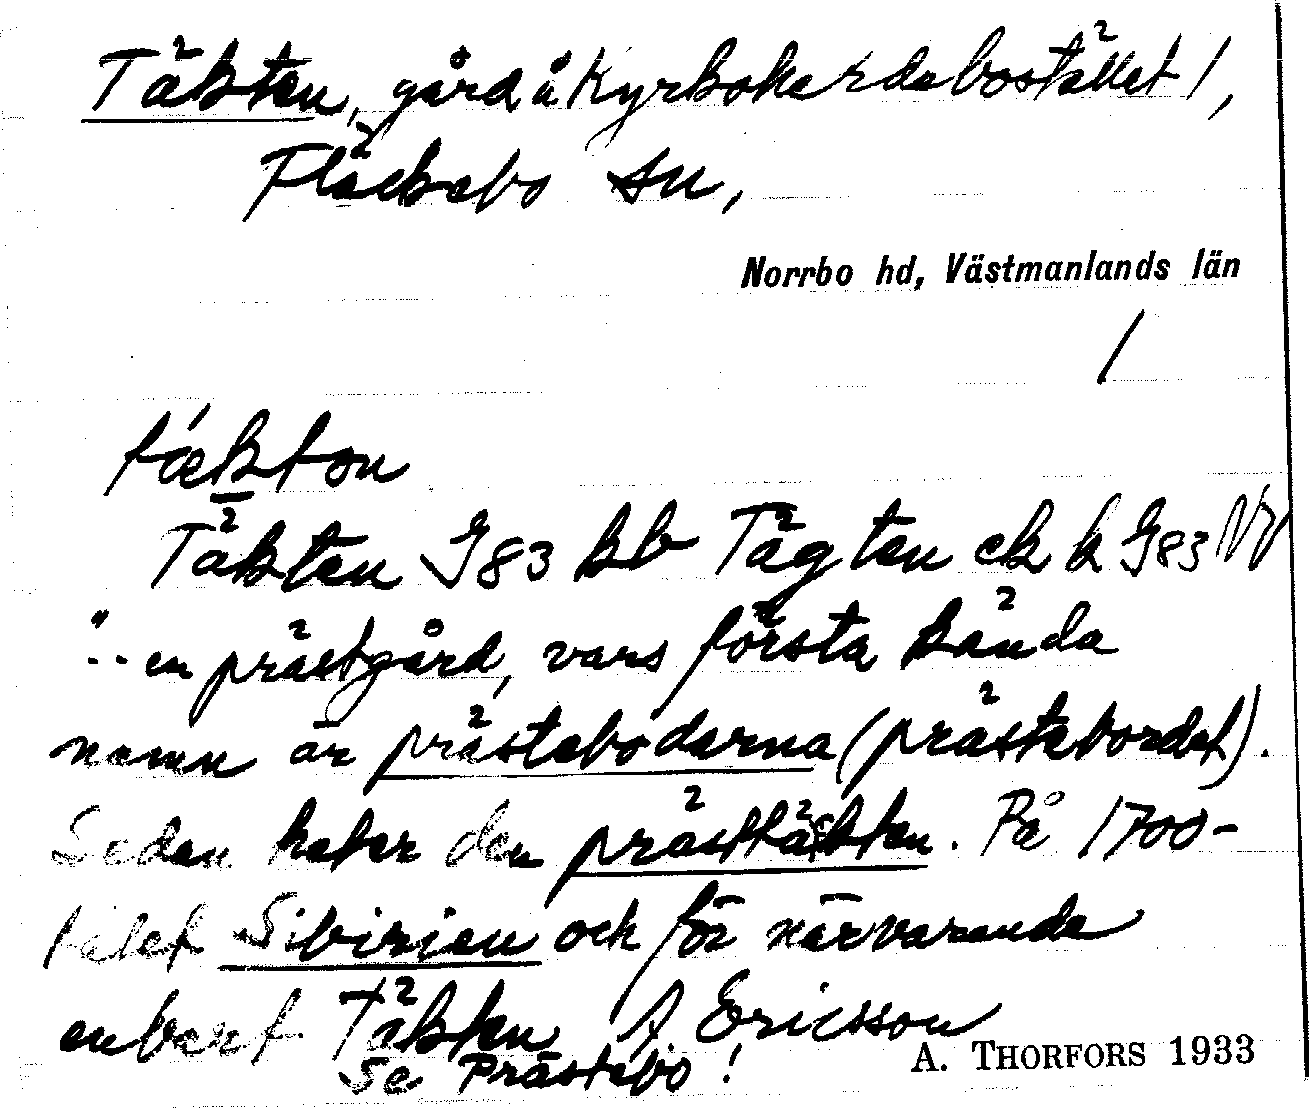 Täkten, gård å Kyrkoherdebostället 1,
Fläckebo sn,
Norrbo hd, Västmanlands län
/
tækton
Täkten G83 kb Tägten ek k G83
"-- en prästgård, vars första kända
namn är prästeboderna (prästebordet).
Sedan heter den prästtäkten. På 1700-
talet Sibirien och för närvarande
enbart Täkten A. Ericsson
Se Prästebo! A. THORFORS 1933